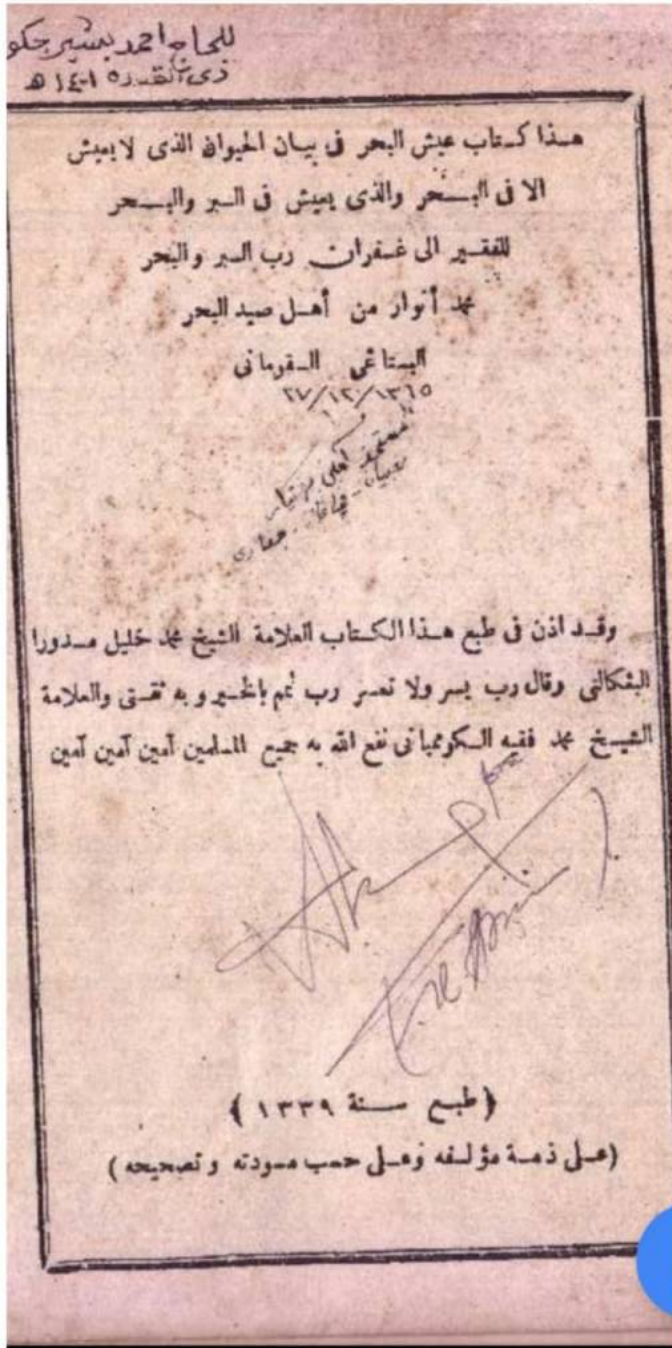 للحاج احمد بشير جكو
ذى القعدة ١٤٠١ ه
هذا كتاب عيش البحر فى بيان الحيوان الذى لا يعيش
الا فى البحر والذى يعيش فى البر والبحر
للفقير الى غفران رب البر والبحر
محمد أنوار من أهل صيد البحر
البستاغى القرمانى
٢٧/١٢/١٣٦٥
وقد اذن فى طبع هذا الكتاب العلامة الشيخ محمد خليل مدورا
البقكالنى وقال رب يسر ولا تعسر رب تمم بالخير و به ثقتى والعلامة
الشيخ محمد فقيه الكومبانى نفع الله به جميع المسلمين آمين آمين آمين
(طبع سنة ١٣٣٩)
(على ذمة مؤلفه وعلى حسب مسودته و تصحيحه)